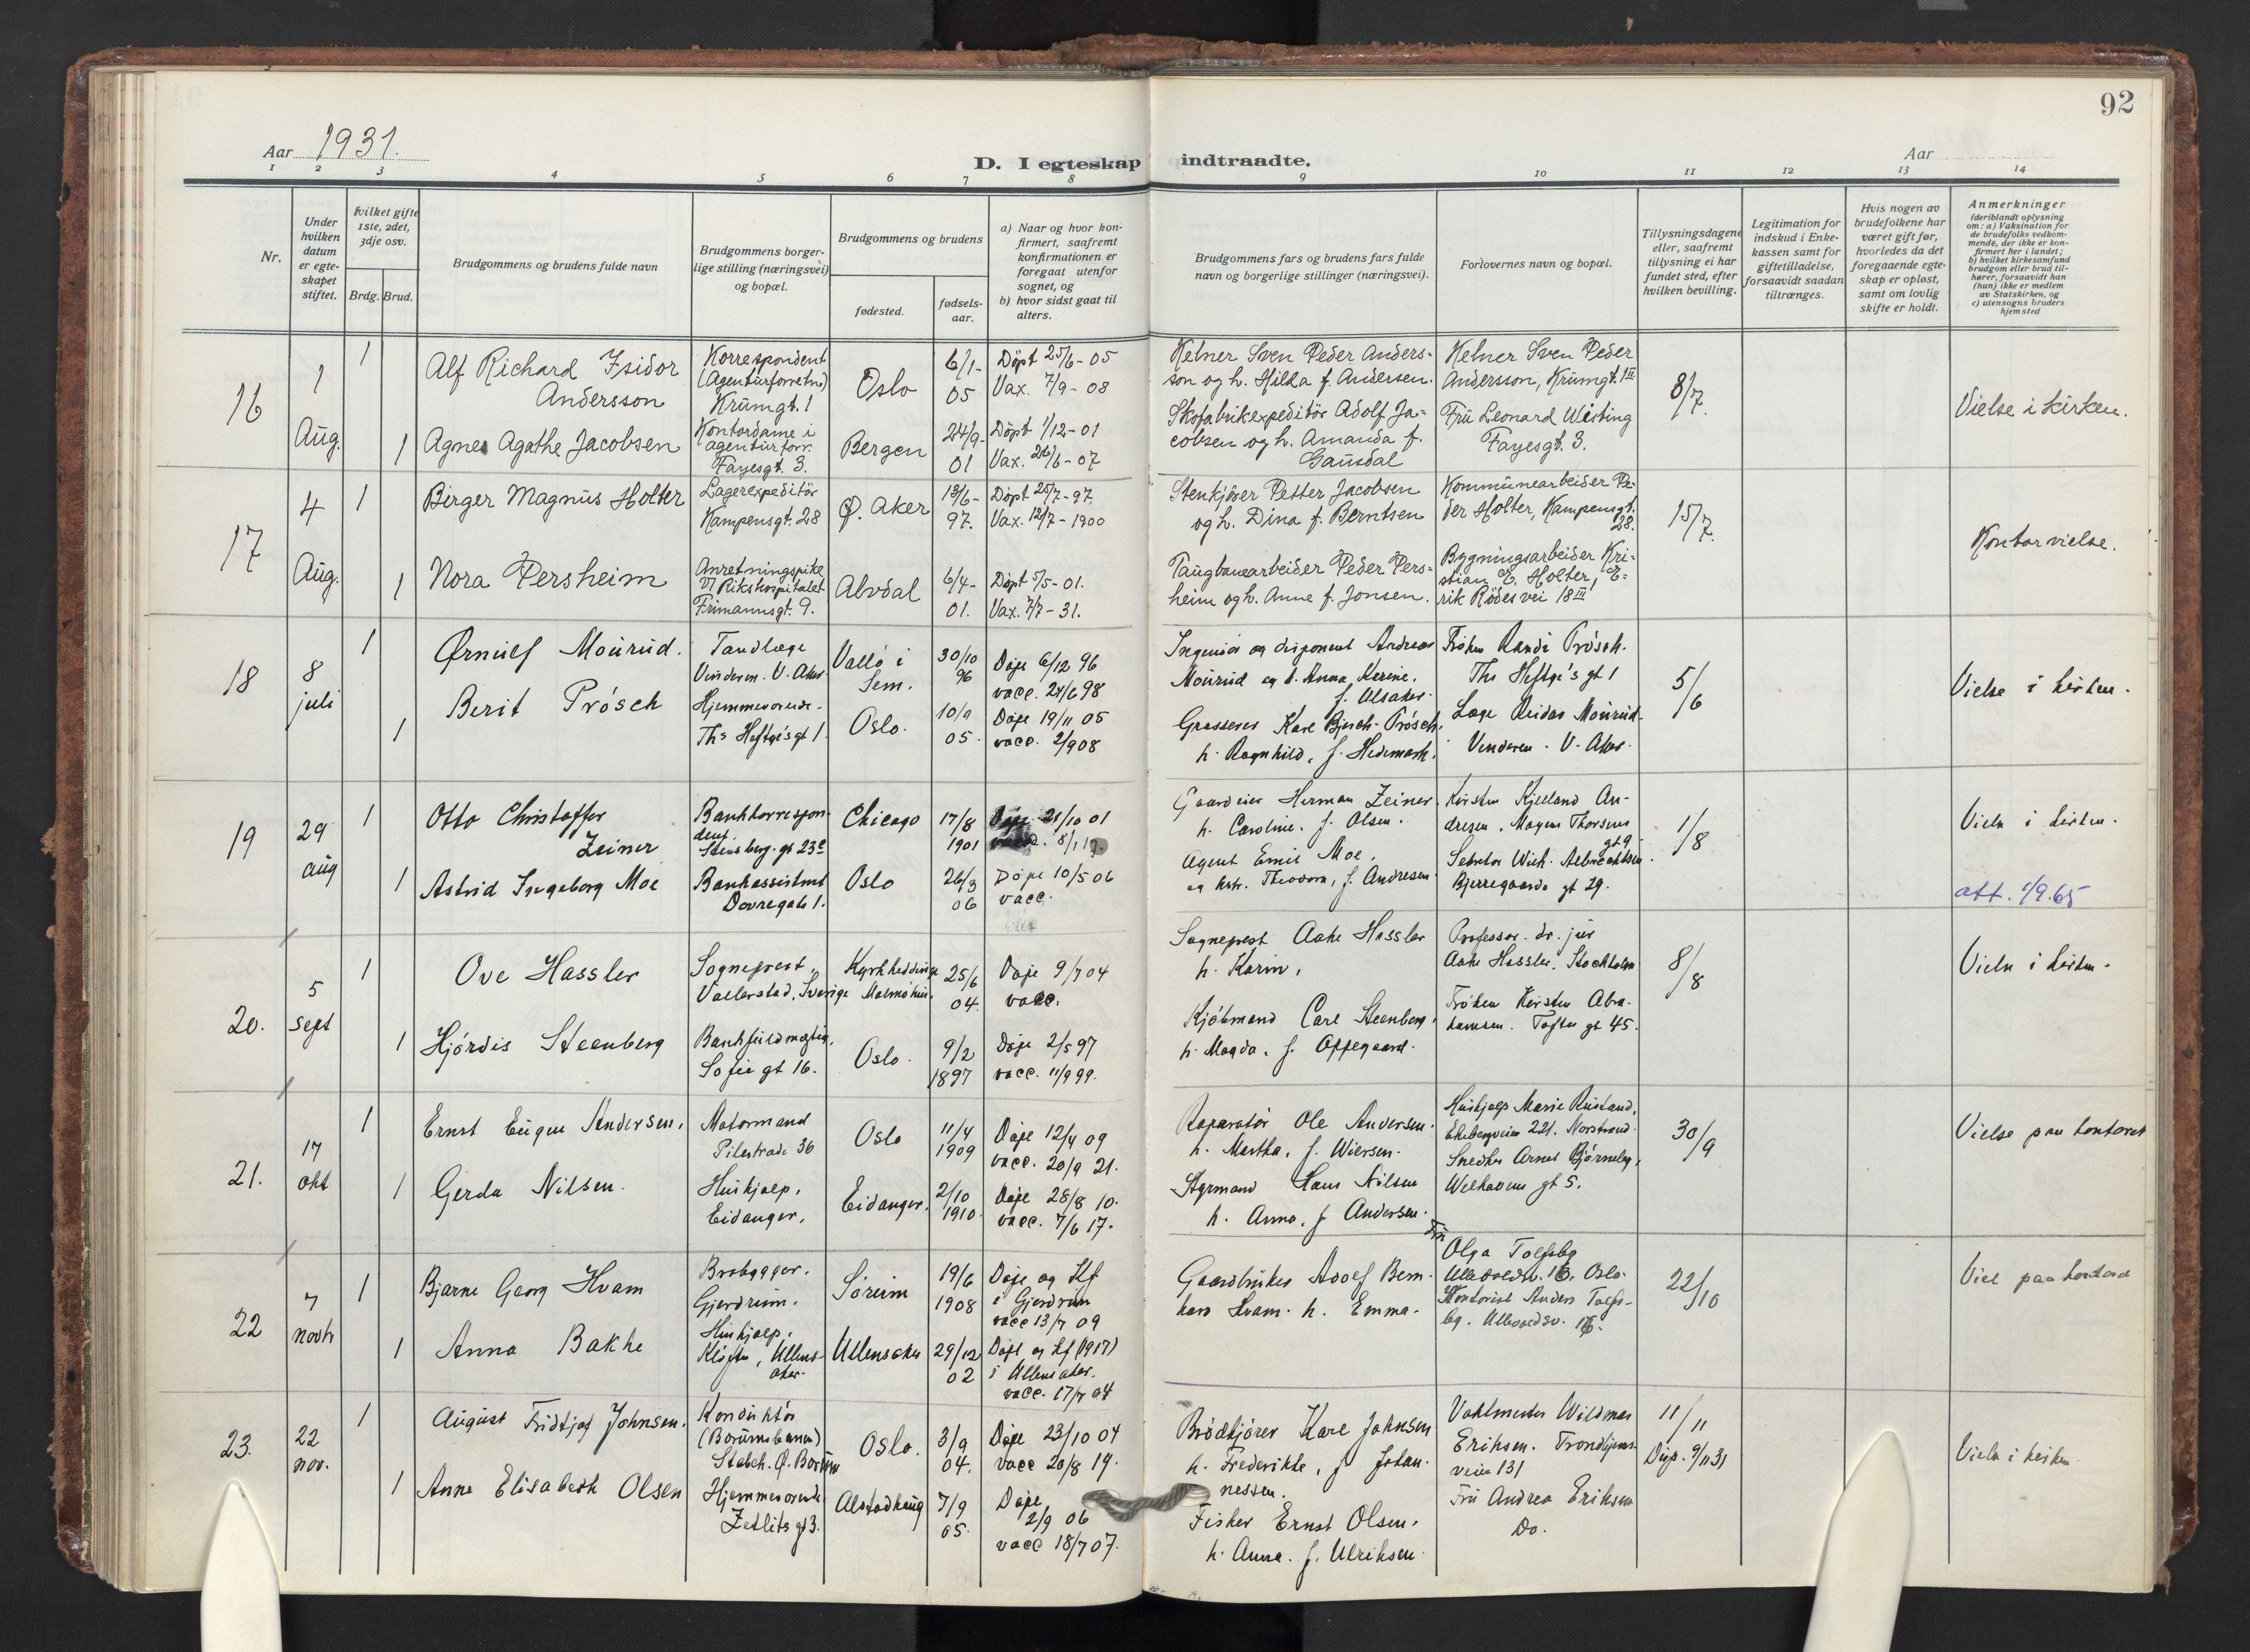 92
Aar 1931.
D. I egteskap indtraadte.
Aar
1 2 3 4 5 6 7 8 9 10 11 12 13 14
Nr.
Under hvilken datum er egteskapet stiftet.
hvilket gifte 1ste, 2det, 3dje osv.
Brdg. Brud.
Brudgommens og brudens fulde navn
Brudgommens borgerlige stilling (næringsvei) og bopæl.
Brudgommens og brudens
fødested.
fødsels-aar.
a) Naar og hvor konfirmert, saafremt konfirmationen er foregaat utenfor sognet, og
b) hvor sidst gaat til alters.
Brudgommens fars og brudens fars fulde navn og borgerlige stillinger (næringsvei).
Forlovernes navn og bopæl.
Tillysningsdagene eller, saafremt tillysning ei har fundet sted, efter hvilken bevilling.
Legitimation for indskud i Enkekassen samt for giftetilladelse, forsaavidt saadan tiltrænges.
Hvis nogen av brudefolkene har været gift før, hvorledes da det foregaaende egteskap er opløst, samt om lovlig skifte er holdt.
Anmerkninger
(deriblandt oplysning om: a) Vaksination for de brudefolks vedkommende, der ikke er konfirmert her i landet; b) hvilket kirkesamfund brudgom eller brud tilhører, forsaavidt han (hun) ikke er medlem av Statskirken, og c) utensogns bruders hjemsted
16
1 Aug.
1
Alf Richard Isidor
Andersson
Korrespondent
(Agenturforretn)
Krumgt. 1
Oslo
6/1-
05
Döpt 25/6-05
Vax. 7/9-08
Kelner Sven Peder Anders-
son og h. Hilda f. Andersen.
Kelner Sven Peder
Andersson, Krumgt. 1 II
8/7.
Vielse i kirken.
1
Agnes Agathe Jacobsen
Kontordame i
agenturforr.
Fayesgt. 3.
Bergen
24/9-
01
Döpt 1/12-01
Vax. 26/6-07
Skofabrikexpeditör Adolf Ja-
cobsen og h. Amanda f.
Gausdal
Fru Leonard Wisting
Fayesgt. 3.
17
4 Aug.
1
Birger Magnus Holter
Lagerexpeditör
Kampensgt. 28
Ø. Aker
13/6-
97.
Döpt 25/7-97.
Vax. 12/7-1900
Stenkjører Petter Jacobsen
og h. Dina f. Berntsen
Kommunearbeider Pe-
der Holter, Kampensgt.
28.
15/7.
Kontorvielse.
1
Nora Persheim
Anretningspike
v/ Rikshospitalet
Frimannsgt. 9.
Alvdal
6/4-
01.
Döpt 5/5-01.
Vax. 7/7-31.
Taugbanearbeider Peder Pers-
heim og h. Anne f. Jonsen.
Bygningsarbeider Kri-
stian E. Holter, E-
rik Rödes vei 18 III
18
8 juli
1
Ørnulf Mourud.
Tandlæge
Vinderen. V. Aker.
Vallö i
Sem.
30/10
96
Døpt 6/12 96
vacc. 24/6 98
Ingeniör og disponent Andreas
Mourud og h. Anna Karine,
f. Ulsaker.
Frøken Randi Prösch.
Ths Heftye's gt 1
5/6
Vielse i kirken.
1
Berit Prösch
Hjemmeværende.
Ths Heftye's gt 1.
Oslo.
10/9
05.
Døpe 19/11 05
vacc. 2/9 08
Grosserer Kare Bjersch-Prösch,
h. Ragnhild, f. Hedemark.
Læge Reidar Mourud
Vinderen. V. Aker.
19
29 aug
1
Otto Christoffer
Zeiner
Bankkorrespon-
dent.
Stensberg. gt 23c
Chicago
17/8
1901
Døpe 21/10 01
Gaardeier Herman Zeiner.
h. Caroline. f. Olsen.
Kirsten Kjelland An-
dresen. Mogens Thorsens
gt 9
1/8
Viels i kirken.
1
Astrid Ingeborg Moe
Bankassistent
Dovregate 1.
Oslo
26/3
06
Døpe 10/5 06
vacc.
Agent Emil Moe.
og hstr. Theodora, f. Andresen
Sekretær Wilh. Albrechtsen.
Bjerregaards gt 29.
att. 1/9.65
20.
5 sept
1
Ove Hassler
Sogneprest,
Vallerstad, Sverige
Kyrkheddinge
Malmöhus.
25/6
04.
Døpe 9/7 04
vacc.
Sogneprest Aake Hassler
h. Karin,
Professor. dr. jur
Aake Hassler. Stockholm
8/8
Viels i kirken.
1
Hjördis Steenberg
Bankfuldmægtig,
Sofie gt 16.
Oslo.
9/2
1897
Døpe 2/5 97
vacc. 11/9 99.
Kjöbmand Carl Steenberg,
h. Magda. f. Oppegaard.
Frøken Kirsten Abra-
hamsen. Toftes gt 45.
21.
17 okt
1
Ernst Eugen Andersen.
Motormand
Pilestræde 36
Oslo
11/4
1909
Døpe 12/4 09
vacc. 20/9 21.
Reparatör Ole Andersen.
h. Martha, f. Wiersen.
Huskjælp Marie Rustand,
Ekebergveien 221. Norstrand.
30/9
Vielse paa kontoret
1
Gerda Nilsen.
Huskjælp.
Eidanger.
Eidanger.
2/10
1910.
Døpe 28/8 10.
vacc. 7/6 17.
Styrmand Hans Nilsen
h. Anna, f. Andersen.
Snedker Arne Bjørneby,
Welhavens gt 5.
22
7 novbr
1
Bjarne Georg Hvam
Brobygger.
Gjerdrum.
Sörum
19/6
1908
Døpe og Kf
i Gjerdrum
vacc 13/7 09
Gaardbruker Adolf Bern-
hard Hvam. h. Emma.
Fru
Olga Tolfsby
Ullevoldsv. 16, Oslo.
Kontorist Anders Tolfs-
by. Ullevoldsv. 16.
22/10
Viel paa kontoret
1
Anna Bakke
Huskjælp.
Kløften, Ullens-
aker.
Ullensaker
29/12
02
Døpt og Kf (1917)
i Ullensaker.
vacc. 17/7 04
23.
22 nov.
1
August Fridtjof Johnsen.
Konduktör
(Bærumsbanen)
Stabek. Ø. Bærum
Oslo.
3/9
04.
Døpe 23/10 04
vacc 20/8 19.
Brödkjører Karl Johnsen
h. Frederikke, f Johan-
nessen.
Vaktmester Wildmar
Eriksen. Trondhjems-
veien 131
11/11
Disp. 9/11 31
Viels i kirken
1
Anna Elisabeth Olsen
Hjemmeværende
Zetlitz gt 3.
Alstadhaug
7/9
05.
Døpe
2/9 06
vacc 18/7 07.
Fisker Ernst Olsen.
h. Anna. f. Ulriksen.
Fru Andrea Eriksen
Do.